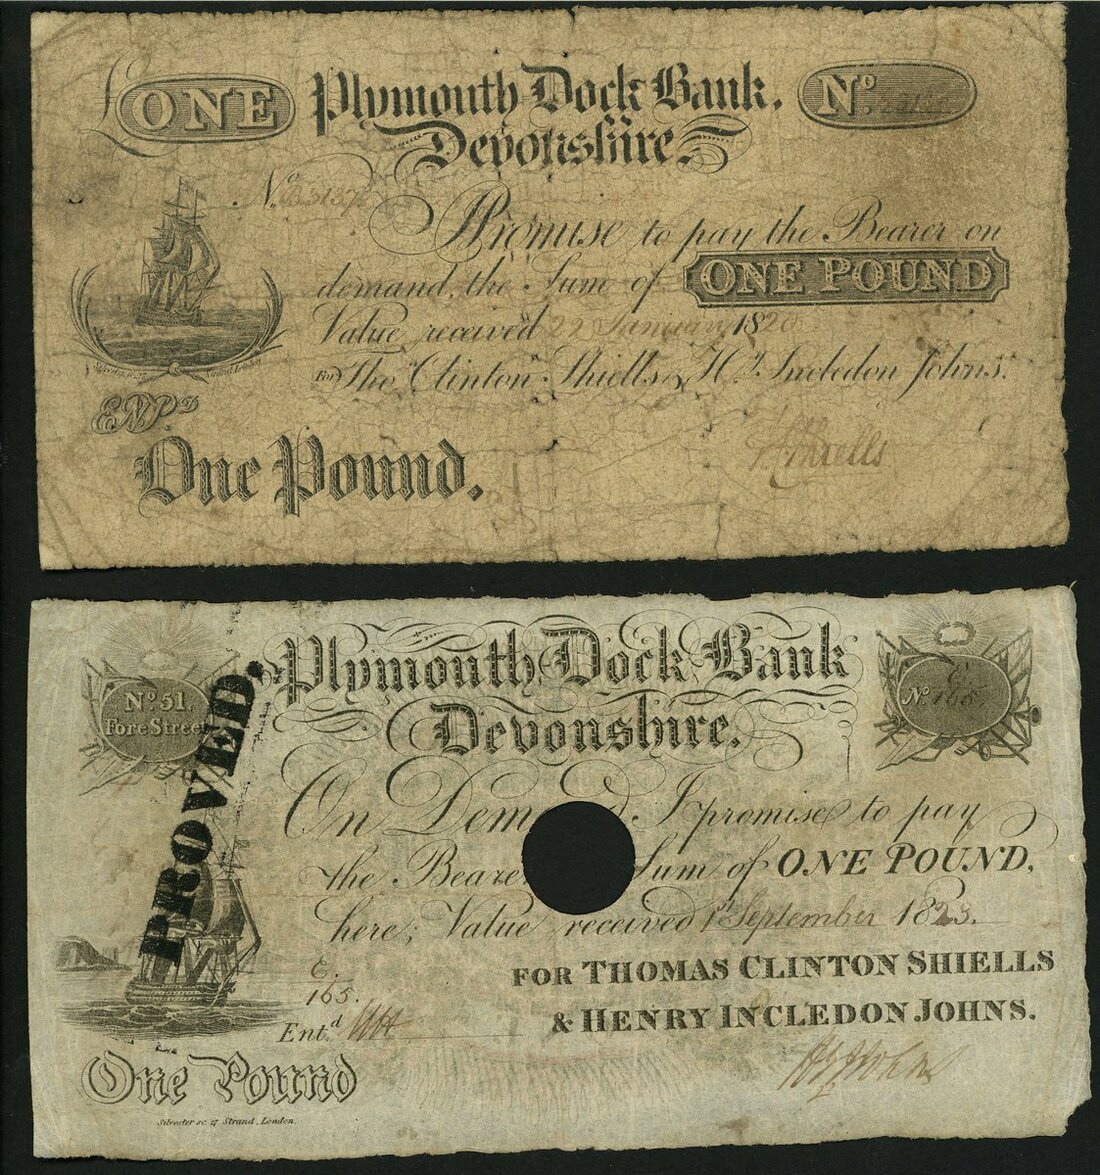 ONE
Plymouth Dock Bank.
Nº
Devonshire.
Nº
I Promise to pay the Bearer on
demand, the Sum of ONE POUND
Value received 22 January 1820
For Thos. Clinton Shiells & Hy. Incledon Johns.
One Pound.
T. C. Shiells
Nº 51.
Fore Street
PROVED.
Plymouth Dock Bank
Devonshire.
Nº 165
On Dem d I promise to pay
the Beare Sum of ONE POUND,
here; Value received 1st September 1823.
FOR THOMAS CLINTON SHIELLS
& HENRY INCLEDON JOHNS.
E.
165.
Ent.d
H I Johns
One Pound
Silvester sc. 27 Strand, London.